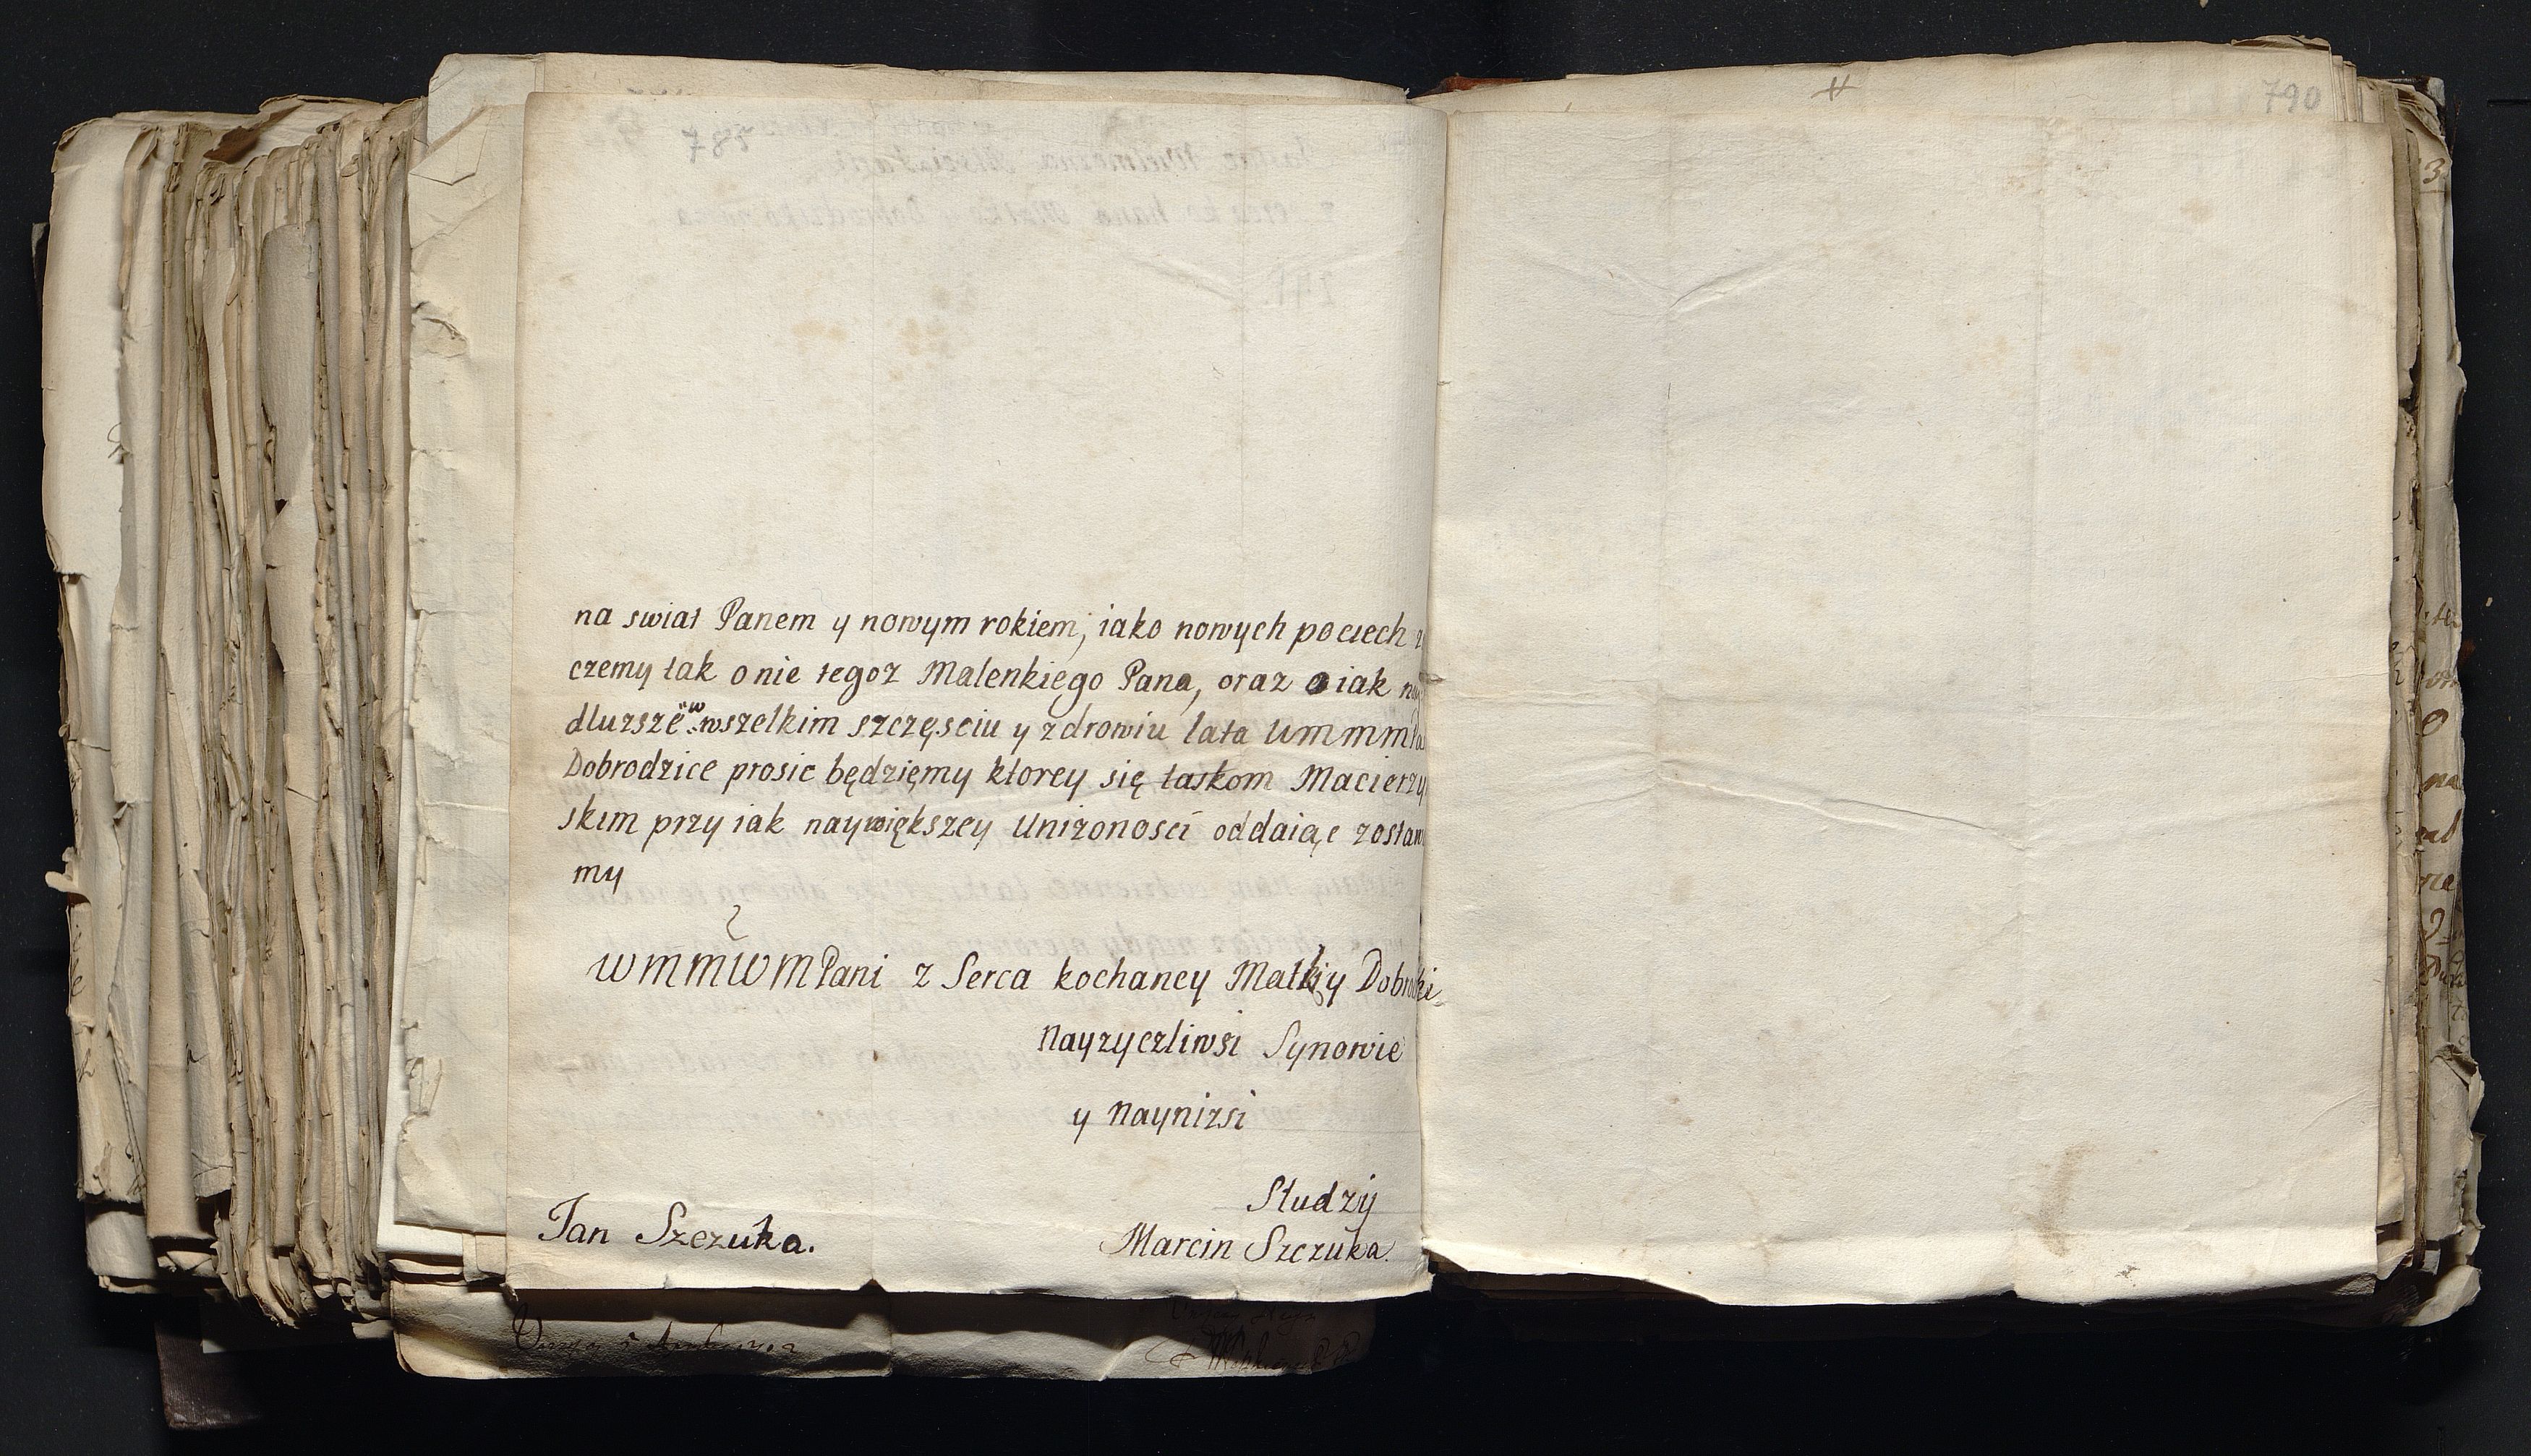 790
na swiat Panem y nowym rokiem, iako nowych pociech
czemy tak o nie tegoz Malenkiego Pana, oraz o iak
dluzsze w wszelkim szczęsciu y zdrowiu lata
Dobrodzice prosic będzięmy ktorey się łaskom Macierzy
skim przy iak naywiększey Unizonosci oddaiąc zostaw
my
WMMWMPani z Serca kochaney Matki y Dobrodzi
Nayzyczliwsi Synowie
y Naynizsi
Studzy
Jan Szczuka.
Marcin Szczuka.